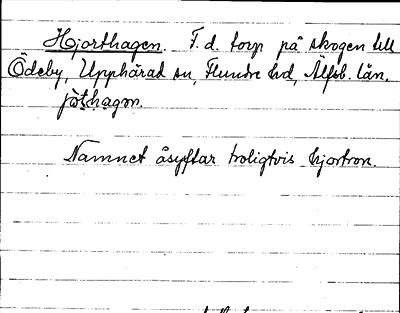 Hjorthagen. F.d. torp på skogen till
Ödeby, Upphärad sn, Flundre hd, Älfsb. län.
Namnet åsyftar troligtvis hjortron.